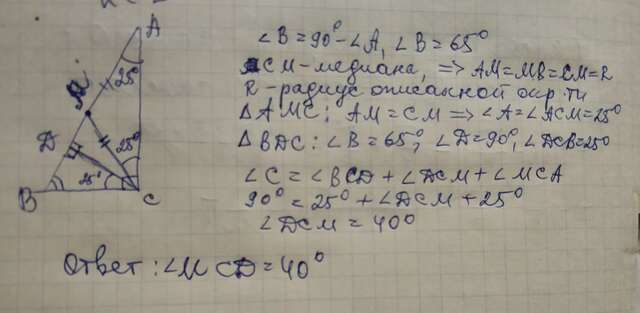 A
25°
M
D
25°
25°
B
C
∠B = 90° - ∠A, ∠B = 65°
CM - медиана, => AM = MB = CM = R
R - радиус описанной окр-ти
△AMC: AM = CM => ∠A = ∠ACM = 25°
△BDC: ∠B = 65°; ∠D = 90°, ∠DCB = 25°
∠C = ∠BCD + ∠DCM + ∠MCA
90° = 25° + ∠DCM + 25°
∠DCM = 40°
Ответ: ∠MCD = 40°